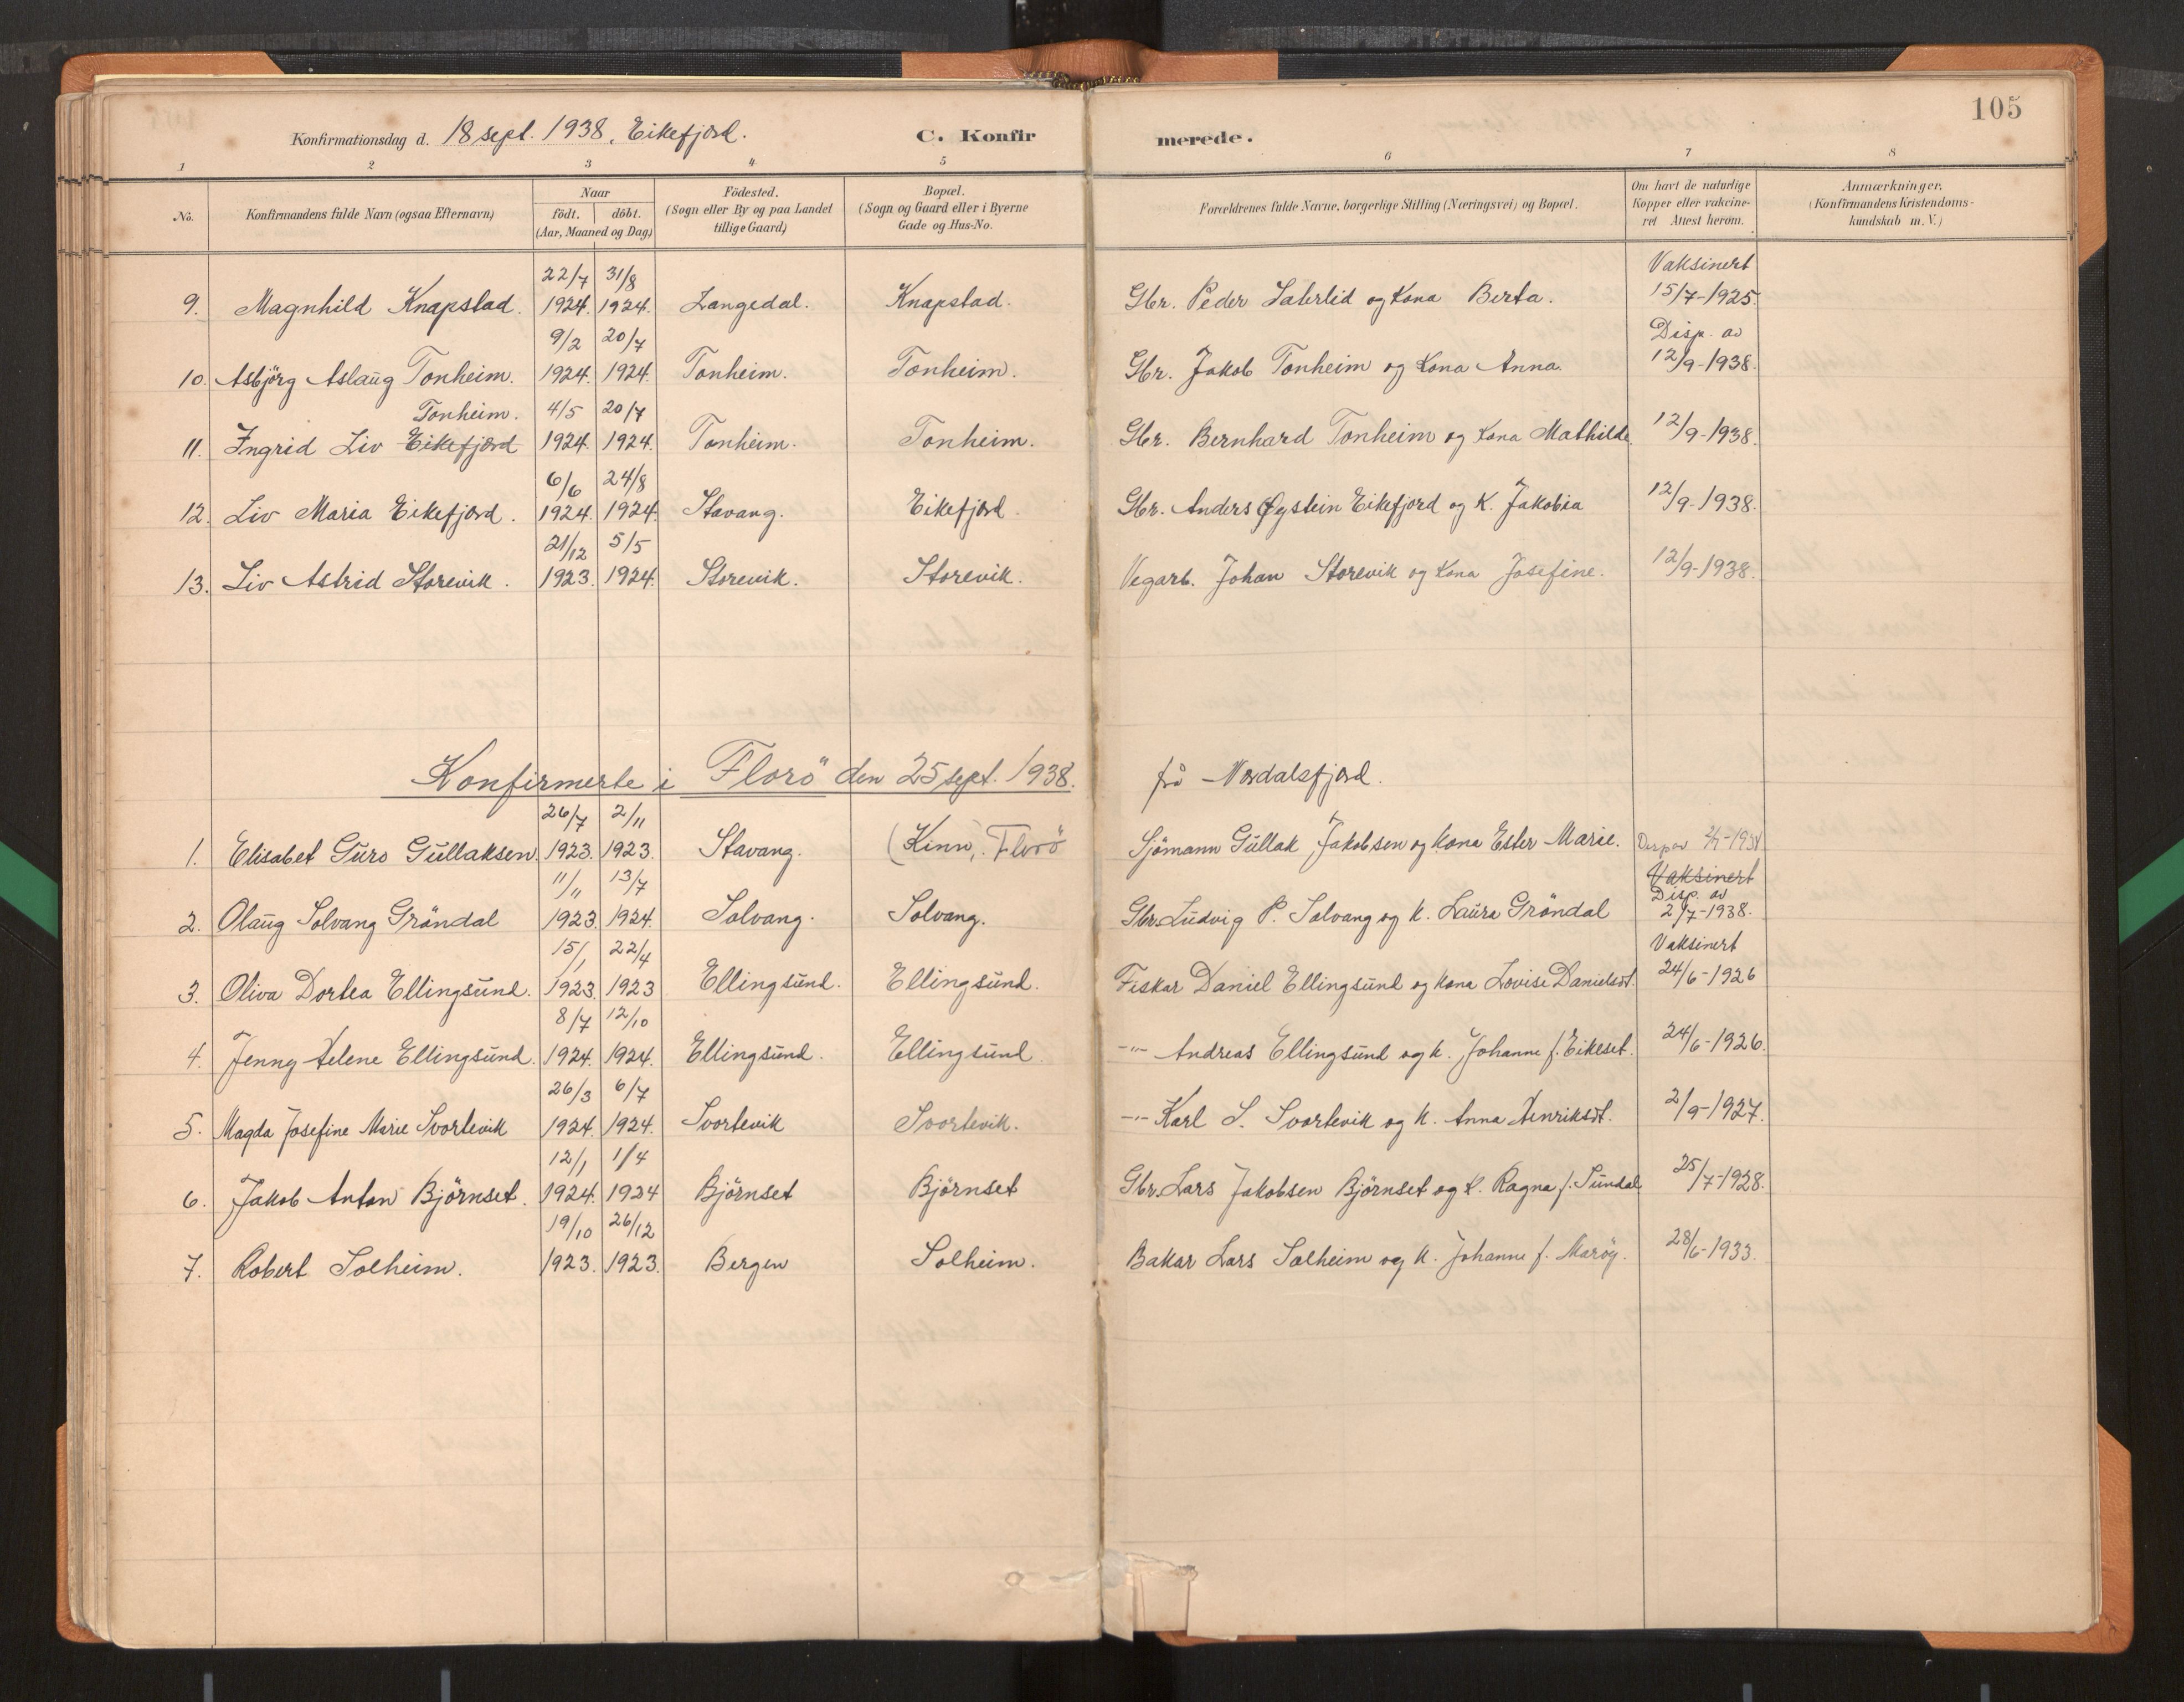 105
Konfirmationsdag d. 18 sept. 1938, Eikefjord. C. Konfir merede.
1 2 3 4 5 6 7 8
No. Konfirmandens fulde Navn (ogsaa Efternavn) Naar födt. döbt. (Aar, Maaned og Dag) Födested. (Sogn eller By og paa Landet tillige Gaard) Bopæl. (Sogn og Gaard eller i Byerne Gade og Hus-No. Forældrenes fulde Navne, borgerlige Stilling (Næringsvei) og Bopæl. Om havt de naturlige Kopper eller vakcineret Attest herom. Anmærkninger. (Konfirmandens Kristendomskundskab m. V.)
22/7 31/8 Vaksinert
9. Magnhild Knapstad. 1924. 1924. Langedal. Knapstad. Gbr. Peder Saherlid og kona Berta. 15/7-1925.
9/2 20/7 Disp. av
10. Asbjörg Aslaug Tonheim. 1924. 1924. Tonheim. Tonheim. Gbr. Jakob Tonheim og kona Anna. 12/9-1938.
Tonheim. 4/5 20/7
11. Ingrid Liv Eikefjord 1924. 1924. Tonheim. Tonheim. Gbr. Bernhard Tonheim og kona Mathilde 12/9-1938.
6/6 24/8
12. Liv Maria Eikefjord. 1924. 1924. Stavang. Eikefjord. Gbr. Anders Øystein Eikefjord og K. Jakobia 12/9-1938.
21/12 5/5
13. Liv Astrid Storevik. 1923. 1924. Storevik. Storevik. Vegarb. Johan Storevik og kona Josefine. 12/9-1938.
Konfirmerte i Florö den 25 sept. 1938. frå Nordalsfjord.
26/7 2/11
1. Elisabet Guro Gullaksen. 1923. 1923. Stavang. (Kinn), Florö Sjömann Gullak Jakobsen og kona Ester Marie. Disp av
11/11 13/7 Vaksinert
Disp. av
2. Olaug Solvang Gröndal 1923. 1924. Solvang. Solvang. Gbr. Ludvig P. Solvang og k. Laura Gröndal 2/7-1938.
15/1 22/4 Vaksinert
3. Oliva Dortea Ellingsund. 1923. 1923 Ellingsund. Ellingsund. Fiskar Daniel Ellingsund og kona Lovise Danielsdt. 24/6-1926
8/7 12/10
4. Jenny Helene Ellingsund. 1924. 1924. Ellingsund. Ellingsund. -"- Andreas Ellingsund og k. Johanne f. Eikeset. 24/6-1926.
26/3 6/7
5. Magda Josefine Marie Svortevik 1924. 1924. Svortevik Svortevik. -"- Karl S. Svortevik og k. Anna Henriksdt. 2/9-1927.
12/1 1/4
6. Jakob Anton Björnset. 1924. 1924 Björnset Björnset Gbr. Lars Jakobsen Björnset og k. Ragna f. Sundal 25/7-1928.
19/10 26/12
7. Robert Solheim. 1923. 1923. Bergen Solheim. Bakar Lars Solheim og k. Johanne f. Maröy. 28/6-1933.